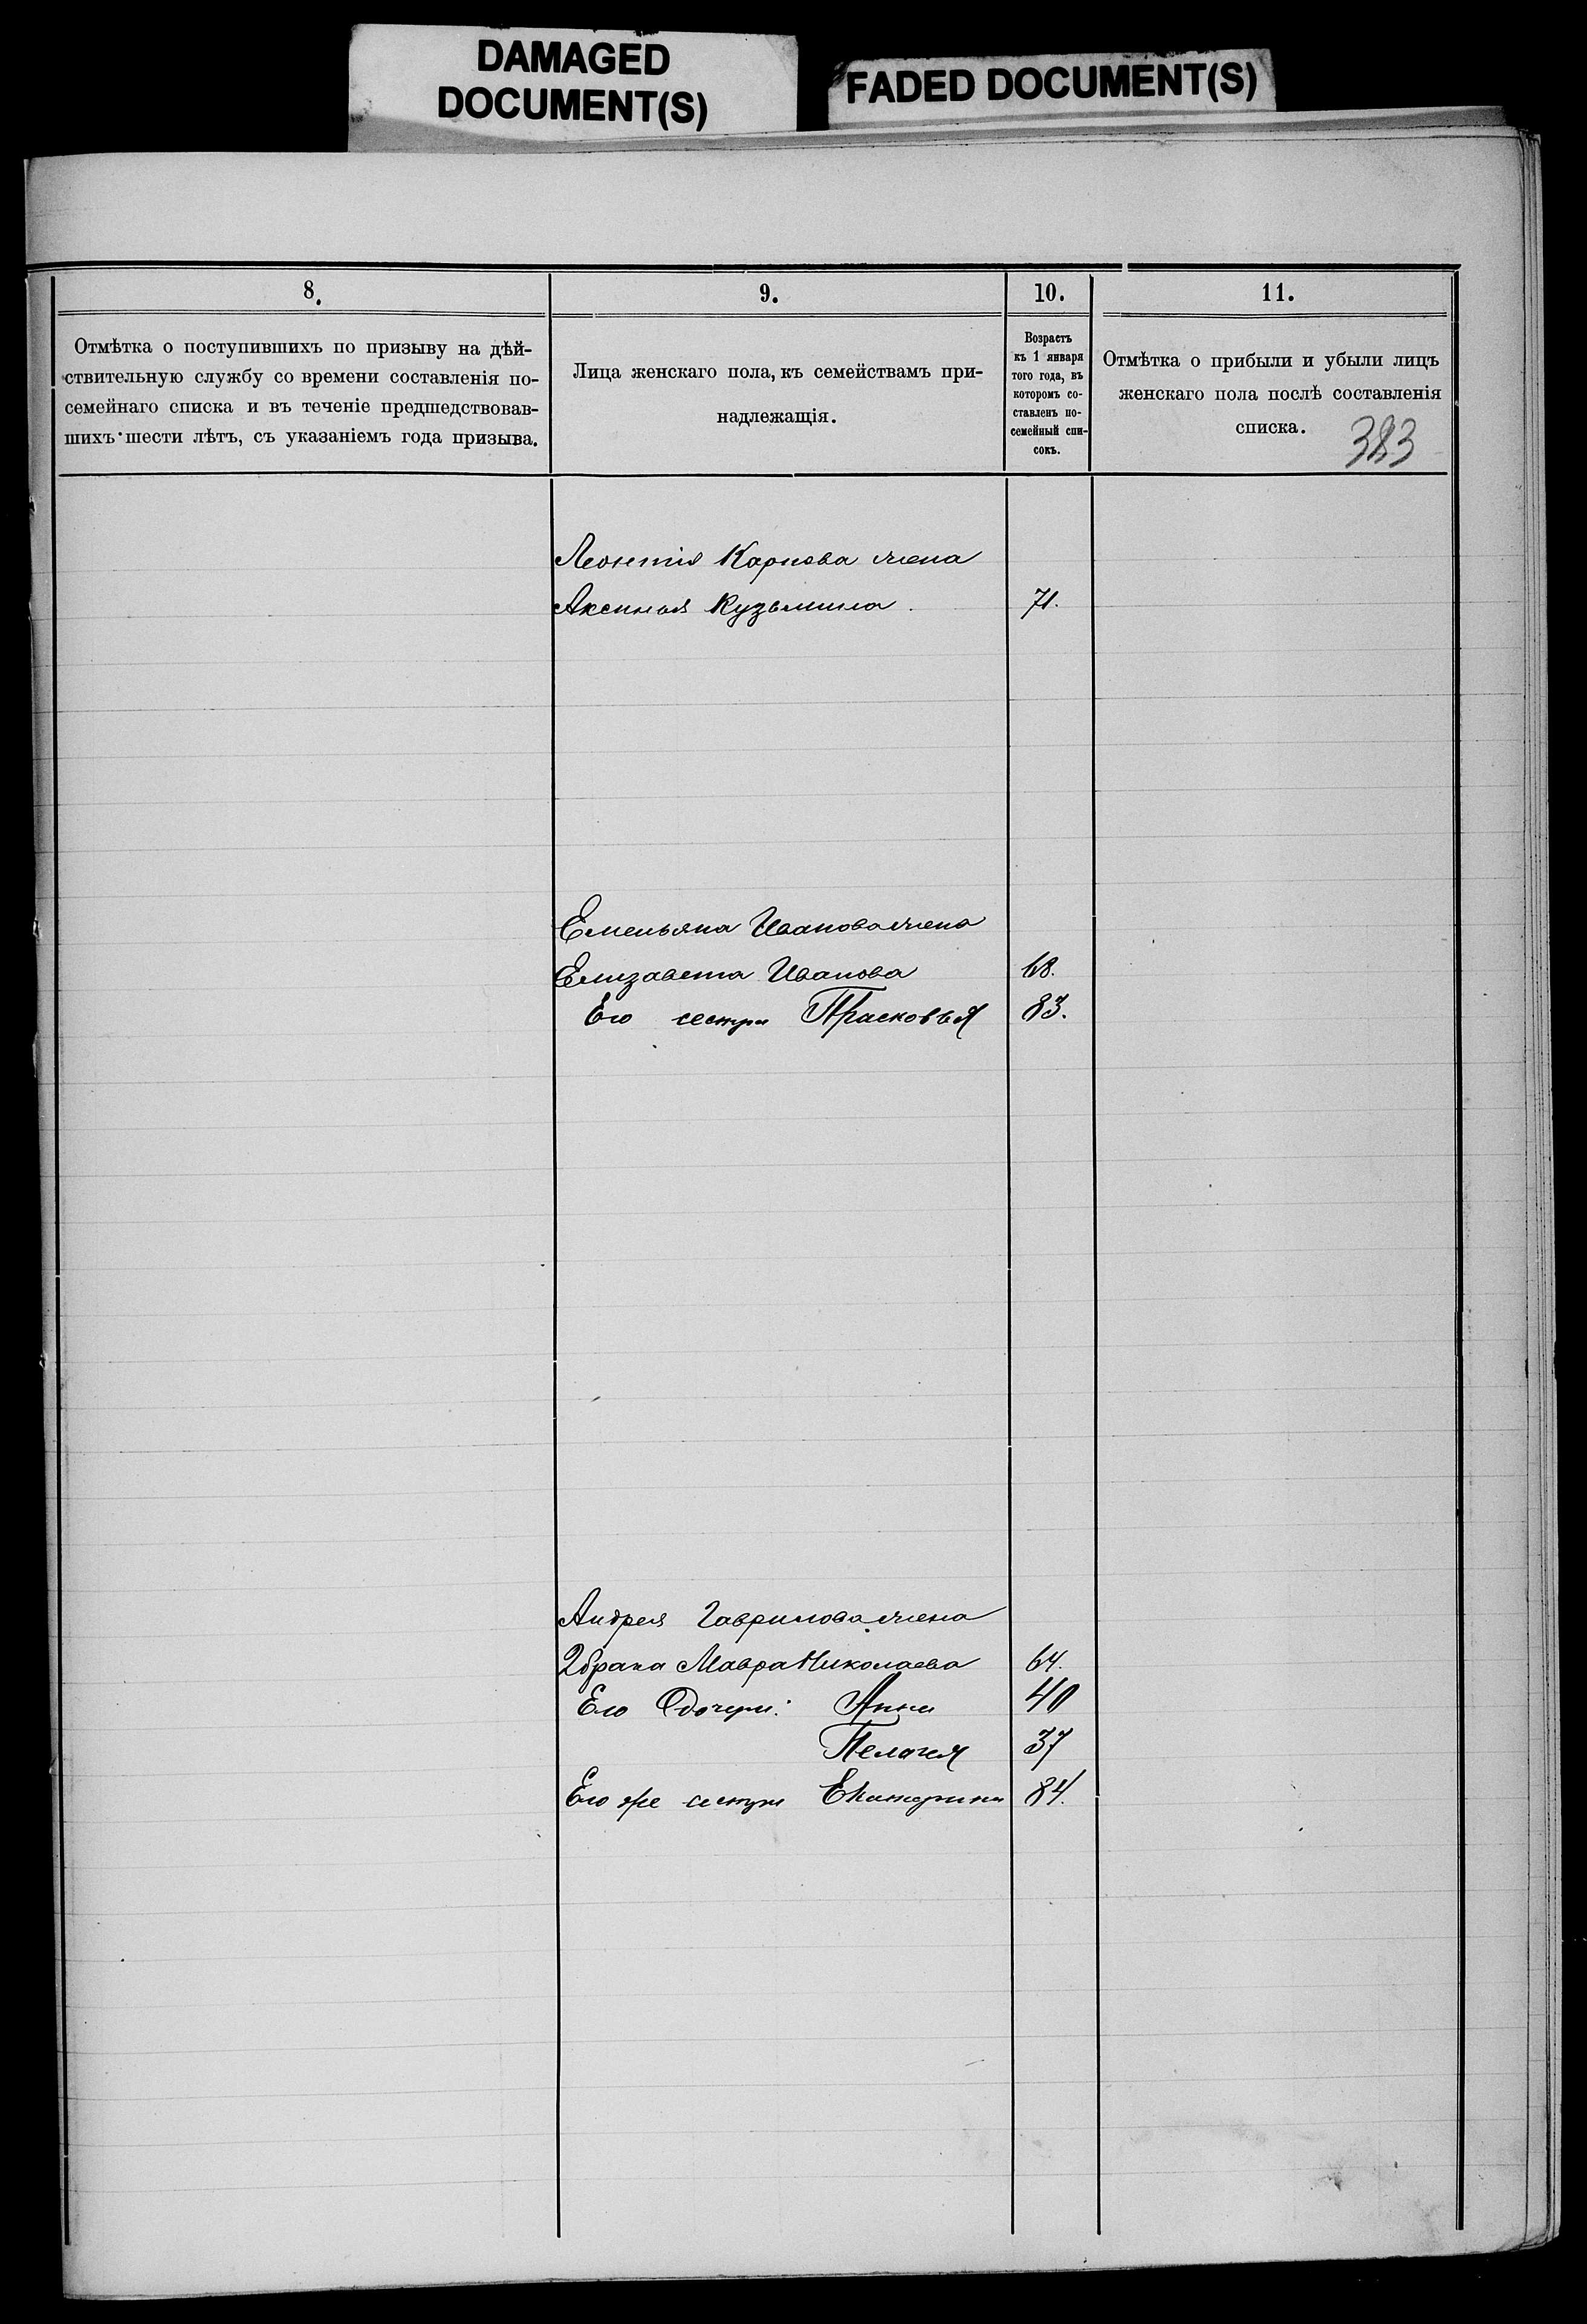 DAMAGED
DOCUMENT(S)
FADED DOCUMENT(S)
8.
Отмѣтка о поступившихъ по призыву на дѣй-
ствительную службу со времени составленія по-
семейнаго списка и въ теченіе предшедствовав-
шихъ шести лѣтъ, съ указаніемъ года призыва.
9.
Лица женскаго пола, къ семействамъ при-
надлежащія.
10.
Возрастъ
къ 1 января
того года, въ
которомъ со-
ставленъ по-
семейный спи-
сокъ.
11.
Отмѣтка о прибыли и убыли лицъ
женскаго пола послѣ составленія
списка.
383
Леонтія Карпова жена
Аксинья Кузьмина. 71.
Емельяна Иванова жена
Елизавета Иванова 68.
Его сестра Прасковья 83.
Андрея Гаврилова жена
2 брака Мавра Николаева 64.
Его дочери: Анна 40
Пелагея 37
Его же сестра Екатерина 84.